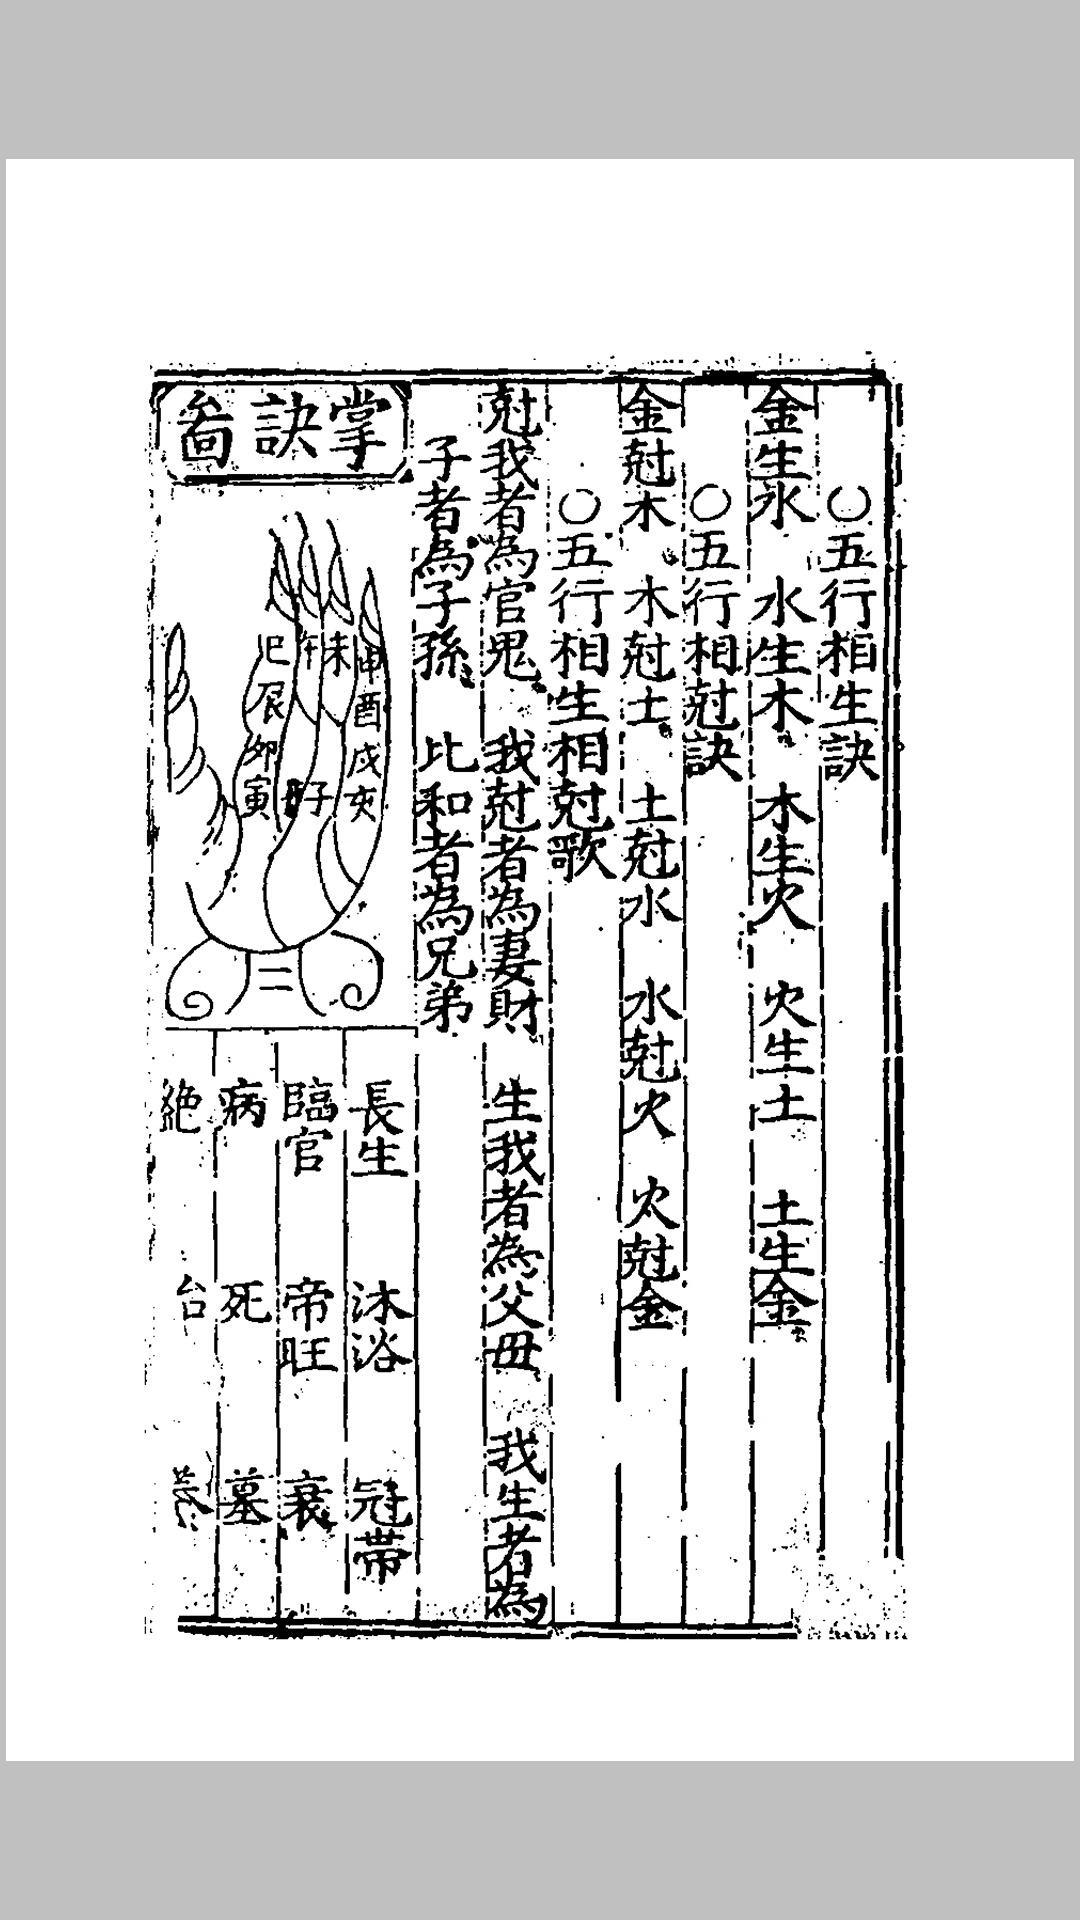 〇五行相生訣
金生水　水生木　木生火　火生土　土生金
〇五行相尅訣
金尅木　木尅土　土尅水　水尅火　火尅金
〇五行相生相尅歌
尅我者為官鬼　我尅者為妻財　生我者為父母　我生者為
子者為子孫　比和者為兄弟
掌訣啚
巳　午　未　申
辰　酉
卯　戌
寅　丑　子　亥
長生　沐浴　冠帶
臨官　帝旺　衰
病　死　墓
絶　台　養